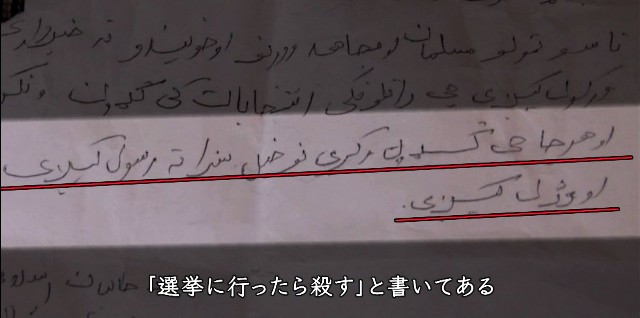 تاسو ټولو مسلمانو مجاهدو ورونو او خویندو ته خبرداری
ورکول کیږی چی راتلونکی انتخاباتو کی ګډون
او هر چا چی ګډون وکړی نو خپل سزا ته رسول کیږی
او وژل کیږی.
طالبان
「選挙に行ったら殺す」と書いてある